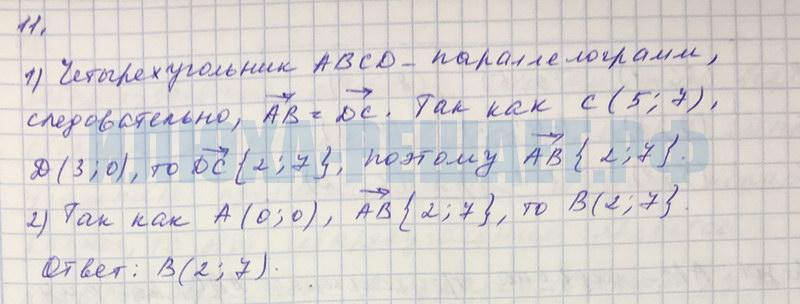 11.
1) Четырехугольник ABCD - параллелограмм,
следовательно, AB = DC. Так как C(5;7),
D(3;0), то DC{2;7}, поэтому AB{2;7}.
2) Так как A(0;0), AB{2;7}, то B(2;7}.
Ответ: B(2;7).